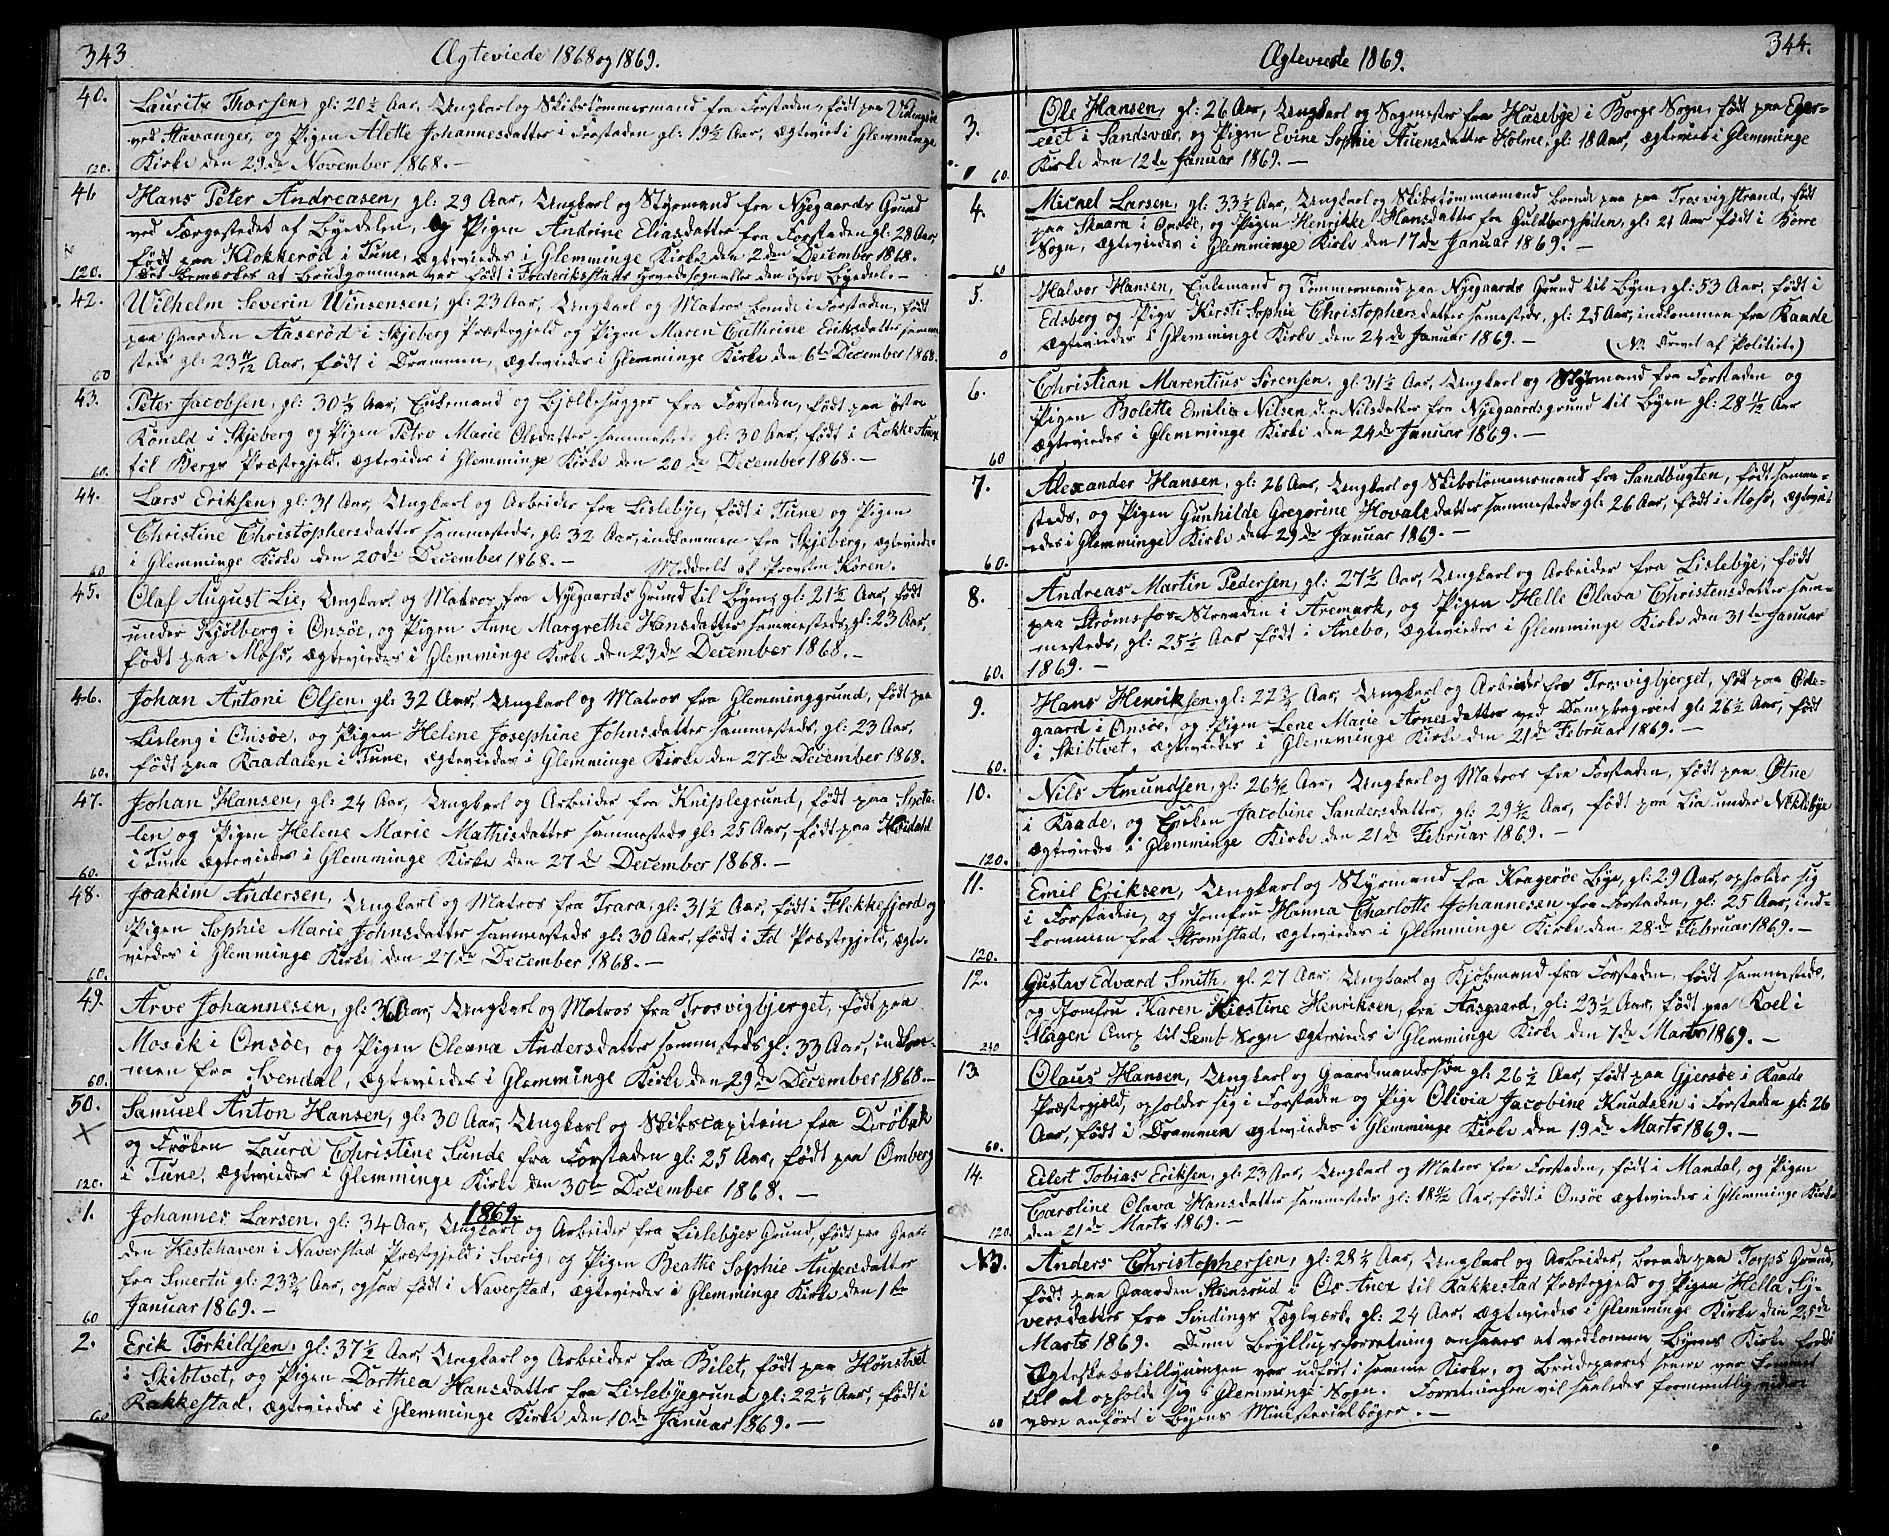 343
Ægteviede 1868 og 1869.
40. Lauritz Thorsen, gl: 20½ Aar, Ungkarl og Skibstømmermand fra Forstaden, født paa
ved Stavanger, og Pigen Alette Johannesdatter i Forstaden gl: 19½ Aar, ægteviet i Glemminge
120. Kirke den 29de November 1868. —
46 Hans Peter Andreasen, gl: 29 Aar, Ungkarl og Styrmand fra Nyegaards Grund
ved Færgestedet af Byedelen, og Pigen Andrine Eliasdatter fra Forstaden gl: 28 Aar,
født paa Klokkerød i Tune, ægteviedes i Glemminge Kirke den 2den December 1868.
120. bemærkes at Brudgommen var født i Frederikstads Hovedsogn eller den østre Byedel. —
42. Wilhelm Severin Winsensen, gl: 23 Aar, Ungkarl og Matros boende i Forstaden, født
paa Gaarden Aaserød i Skjeberg Præstegjeld og Pigen Maren Cathrine Eriksdatter samme
60 steds gl: 23 11/12 Aar, født i Drammen, ægteviedes i Glemminge Kirke den 6te December 1868.
43. Peter Jacobsen, gl: 30½ Aar, Enkemand og Bjælkehugger fra Forstaden, født paa østre
Koneld i Skjeberg og Pigen Petro Marie Olsdatter sammesteds gl: 30 Aar, født i Rokke Anex
60. til Bergs Præstegjeld, ægtevides i Glemminge Kirke den 20de December 1868. —
44. Lars Eriksen, gl: 31 Aar, Ungkarl og Arbeider fra Lislebye, født i Tune og Pigen
Christine Christophersdatter sammesteds, gl: 32 Aar, indkommen fra Skjeberg, ægteviedes
60 i Glemminge Kirke den 20de December 1868. — Meddeelt af Provsten Koren.
45. Olaf August Lie, Ungkarl og Matros fra Nyegaards Grund til Byens gl: 21½ Aar, født
under Kjølberg i Onsøe, og Pigen Anne Margrethe Hansdatter sammesteds, gl: 23 Aar,
født paa Moss, ægteviedes i Glemminge Kirke den 23de December 1868. —
46. Johan Antoni Olsen, gl: 32 Aar, Ungkarl og Matros fra Glemminggrund, født paa
Lisleng i Onsøe, og Pigen Helene Josephine Johnsdatter sammesteds, gl: 23 Aar,
60. født paa Raadalen i Tune, ægteviedes i Glemminge Kirke den 27de December 1868.
47. Johan Hansen, gl: 24 Aar, Ungkarl og Arbeider fra Kniplegrund, født paa
len og Pigen Helene Marie Mathisdatter sammesteds gl: 25 Aar, født paa
60. i Tune ægteviedes i Glemminge Kirke den 27de December 1868. —
48. Joakim Andersen, Ungkarl og Matros fra Trara, gl: 31½ Aar, født i Flekkefjord og
Pigen Sophie Marie Johnsdatter sammesteds gl: 30 Aar, født i Id Præstegjeld, ægte-
60. viedes i Glemminge Kirke den 27de December 1868. —
49. Arve Johannesen, gl: Aar, Ungkarl og Matros fra Trosvigbjerget, født paa
Mosik i Onsøe, og Pigen Oleana Andersdatter sammesteds gl: 33 Aar, indkom-
60. men fra Svendal, ægteviedes i Glemminge Kirke den 29de December 1868. —
50. Samuel Anton Hansen, gl: 30 Aar, Ungkarl og Skibscapitein fra Drøbak
og Frøken Laura Christine Sunde fra Forstaden gl: 25 Aar, født paa Omberg
120. i Tune, ægteviedes i Glemminge Kirke den 30te December 1868. —
1869.
1. Johannes Larsen, gl: 34 Aar, Ungkarl og Arbeider fra Lislebyes Grund, født paa Gaar-
den Kesthaven i Naverstad Præstegjeld i Sverig, og Pigen Beathe Sophie Andersdatter
fra Smertu gl: 23¾ Aar, ogsaa født i Naverstad, ægteviedes i Glemminge Kirke den 1ste
60 Januar 1869. —
2. Erik Torkildsen, gl: 37½ Aar, Ungkarl og Arbeider fra Bilet, født paa Hønstvet
i Skibtvet, og Pigen Dorthea Hansdatter fra Lislebyegrund gl: 22¼ Aar, født i
60 Rakkestad, ægteviedes i Glemminge Kirke den 10de Januar 1869. —
344.
Ægteviede 1869.
3. Ole Hansen, gl: 26 Aar, Ungkarl og Sagmester fra Husebye i Borge Sogn, født paa Eger-
eiet i Sandsvær, og Pigen Evine Sophie Auensdatter Holme, gl: 18 Aar, ægteviet i Glemminge
60. Kirke den 12te Januar 1869. —
4. Micael Larsen, gl: 33½ Aar, Ungkarl og Skibstømmermand boende paa Trosvigstrand, født
paa Skaara i Onsøe, og Pigen Henrikke Hansdatter fra Guldbergsiden, gl: 21 Aar født i Borre
60 Sogn, ægteviedes i Glemminge Kirke den 17de Januar 1869. —
5. Halvor Hansen, Enkemand og Tømmermand paa Nyegaards Grund til Byen, gl: 53 Aar, født i
Edsberg og Pige Kirsti Sophie Christophersdatter samesteds, gl: 25 Aar, indkommen fra Raade
0 ægteviedes i Glemminge Kirke den 24de Januar 1869. — (NB. Krevet af Politiet.)
6. Christian Marentius Sørensen, gl: 31½ Aar, Ungkarl og Styrmand fra Forstaden og
Pigen Bolette Emilie Nilsen d.e. Nilsdatter fra Nyegaardsgrund til Byen gl: 28 11/12 Aar
60 ægteviedes i Glemminge Kirke den 24de Januar 1869. —
7. Alexander Hansen, gl: 26 Aar, Ungkarl og Skibstømmermand fra Sandbugten, født samme-
steds, og Pigen Gunhilde Gregorine Hovaldsdatter sammesteds gl: 26 Aar, født i Moss, ægtevi-
60. edes i Glemminge Kirke den 29de Januar 1869. —
8. Andreas Martin Pedersen, gl: 27½ Aar, Ungkarl og Arbeider fra Lislebye, født
paa Strømsfos Stranden i Aremark, og Pigen Helle Olava Christensdatter sam-
mesteds, gl: 25½ Aar født i Anebo, ægteviedes i Glemminge Kirke den 31te Januar
60. 1869. —
9. Hans Henriksen, gl: 22¾ Aar, Ungkarl og Arbeider fra Trosvigbjerget, født paa Øde-
gaard i Onsøe, og Pigen Lene Marie Arnesdatter ved Dampbageriet gl: 26½ Aar, født
60. i Skibtvet, ægteviedes i Glemminge Kirke den 21de Februar 1869. —
10. Nils Amundsen, gl: 26 Aar, Ungkarl og Matros fra Forstaden, født paa Østne
i Raade, og Enken Jacobine Sandersdatter, gl: 29 Aar, født paa Lia under
120. ægteviedes i Glemminge Kirke den 21de Februar 1869. —
11. Emil Eriksen, Ungkarl og Styrmand fra Kragerøe Bye, gl: 29 Aar, opholder sig
i Forstaden, og Jomfru Hanna Charlotte Johannesen fra Forstaden, gl: 25 Aar, ind-
120. kommen fra Strømstad, ægteviedes i Glemminge Kirke den 28de Februar 1869. —
12. Gustav Edvard Smith, gl: 27 Aar, Ungkarl og Kjøbmand fra Forstaden, født sammesteds,
og Jomfru Karen Kirstine Henriksen, fra Aasgaard, gl: 23½ Aar, født paa Roel i
240 Slagen Anex til Semb Sogn ægteviedes i Glemminge Kirke den 7de Marts 1869. —
13. Olaus Hansen, Ungkarl og Gaardmandssøn gl: 26½ Aar, født paa Gjersøe i Raade
Præstegjeld, opholder sig i Forstaden og Pige Olivia Jacobine Knudsen i Forstaden gl: 26
60. Aar, født i Drammen ægteviedes i Glemminge Kirke den 19de Marts 1869. —
14. Eilert Tobias Eriksen, gl: 23 Aar, Ungkarl og Matros fra Forstaden, født i Mandal, og Pigen
Caroline Olava Hansdatter sammesteds gl: 18 Aar, født i Onsøe ægteviedes i Glemminge Kirke
120. den 21de Marts 1869. —
Anders Christophersen, gl: 28¼ Aar, Ungkarl og Arbeider, boende paa Torps Grund,
født paa Gaarden Steensrud i Os Anex til Rakkestad Præstegjeld og Pigen Hella Sy-
versdatter fra Sindings Teglværk, gl: 24 Aar, ægteviedes i Glemminge Kirke den 25de
Marts 1869. Denne Bryllupsforretning ansees at vedkomme Byens Kirke fordi
Ægteskabstillysningen var udført i samme Kirke, og Brudeparret senere var kommet
til at opholde sig i Glemminge Sogn. Forretningen vil saaledes formentlig videre
60 være anført i Byens Ministerialbøger. —